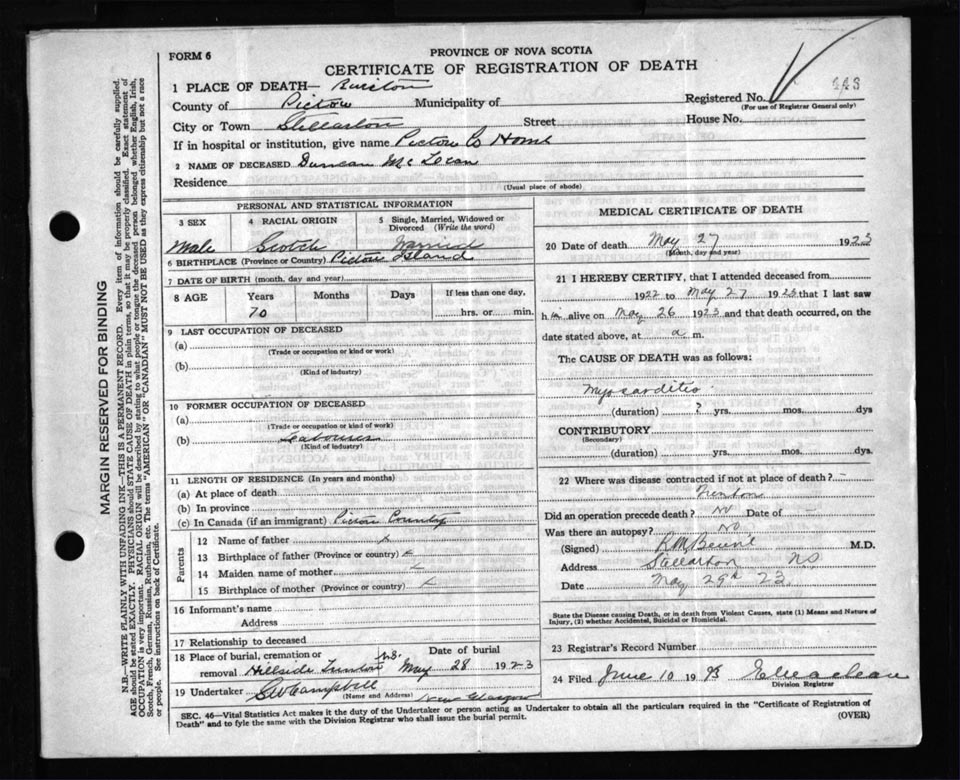 FORM 6
PROVINCE OF NOVA SCOTIA
CERTIFICATE OF REGISTRATION OF DEATH
443
1 PLACE OF DEATH—
Registered No.
(For use of Registrar General only)
County of Pictou Municipality of
City or Town Stellarton Street House No.
If in hospital or institution, give name Pictou Co Home
2 NAME OF DECEASED Duncan McLean
Residence
(Usual place of abode)
PERSONAL AND STATISTICAL INFORMATION
3 SEX 4 RACIAL ORIGIN 5 Single, Married, Widowed or Divorced (Write the word)
Male Scotch Married
6 BIRTHPLACE (Province or Country) Pictou Island
7 DATE OF BIRTH (month, day and year)
8 AGE Years Months Days If less than one day,
70 hrs. or min.
9 LAST OCCUPATION OF DECEASED
(a)
(Trade or occupation or kind or work)
(b)
(Kind of industry)
10 FORMER OCCUPATION OF DECEASED
(a)
(Trade or occupation or kind of work)
(b)
(Kind of industry)
11 LENGTH OF RESIDENCE (In years and months)
(a) At place of death
(b) In province
(c) In Canada (if an immigrant) Pictou County
Parents
12 Name of father
13 Birthplace of father (Province or country)
14 Maiden name of mother
15 Birthplace of mother (Province or country)
16 Informant's name
Address
17 Relationship to deceased
18 Place of burial, cremation or Date of burial
removal Hillside Trenton N.S. May 28 1923
19 Undertaker SW Campbell New Glasgow
(Name and Address)
MEDICAL CERTIFICATE OF DEATH
20 Date of death May 27 1923
(Month, day and year)
21 I HEREBY CERTIFY, that I attended deceased from
1922 to May 27 1923 that I last saw
him alive on May 26 1923 and that death occurred, on the
date stated above, at a m.
The CAUSE OF DEATH was as follows:
Myocarditis
(duration) ? yrs. mos. dys
CONTRIBUTORY
(Secondary)
(duration) yrs. mos. dys
22 Where was disease contracted if not at place of death?
Trenton
Did an operation precede death? No Date of —
Was there an autopsy? No
(Signed) M.D.
Address Stellarton NS
Date May 29th 23
State the Disease causing Death, or in death from Violent Causes, state (1) Means and Nature of
Injury, (2) whether Accidental, Suicidal or Homicidal.
23 Registrar's Record Number
24 Filed June 10 19
Division Registrar
SEC. 46—Vital Statistics Act makes it the duty of the Undertaker or person acting as Undertaker to obtain all the particulars required in the "Certificate of Registration of
Death" and to fyle the same with the Division Registrar who shall issue the burial permit.
(OVER)
MARGIN RESERVED FOR BINDING
N.B.—WRITE PLAINLY WITH UNFADING INK—THIS IS A PERMANENT RECORD. Every item of information should be carefully supplied.
AGE should be stated EXACTLY. PHYSICIANS should STATE CAUSE OF DEATH in plain terms, so that it may be properly classified. Exact statement of
OCCUPATION is very important. RACIAL ORIGIN will be described by stating to what people or tongue the deceased person belonged whether English, Irish,
Scotch, French, German, Russian, Ruthenian, etc. The terms "AMERICAN" OR "CANADIAN" MUST NOT BE USED as they express citizenship but not a race
or people. See instructions on back of Certificate.